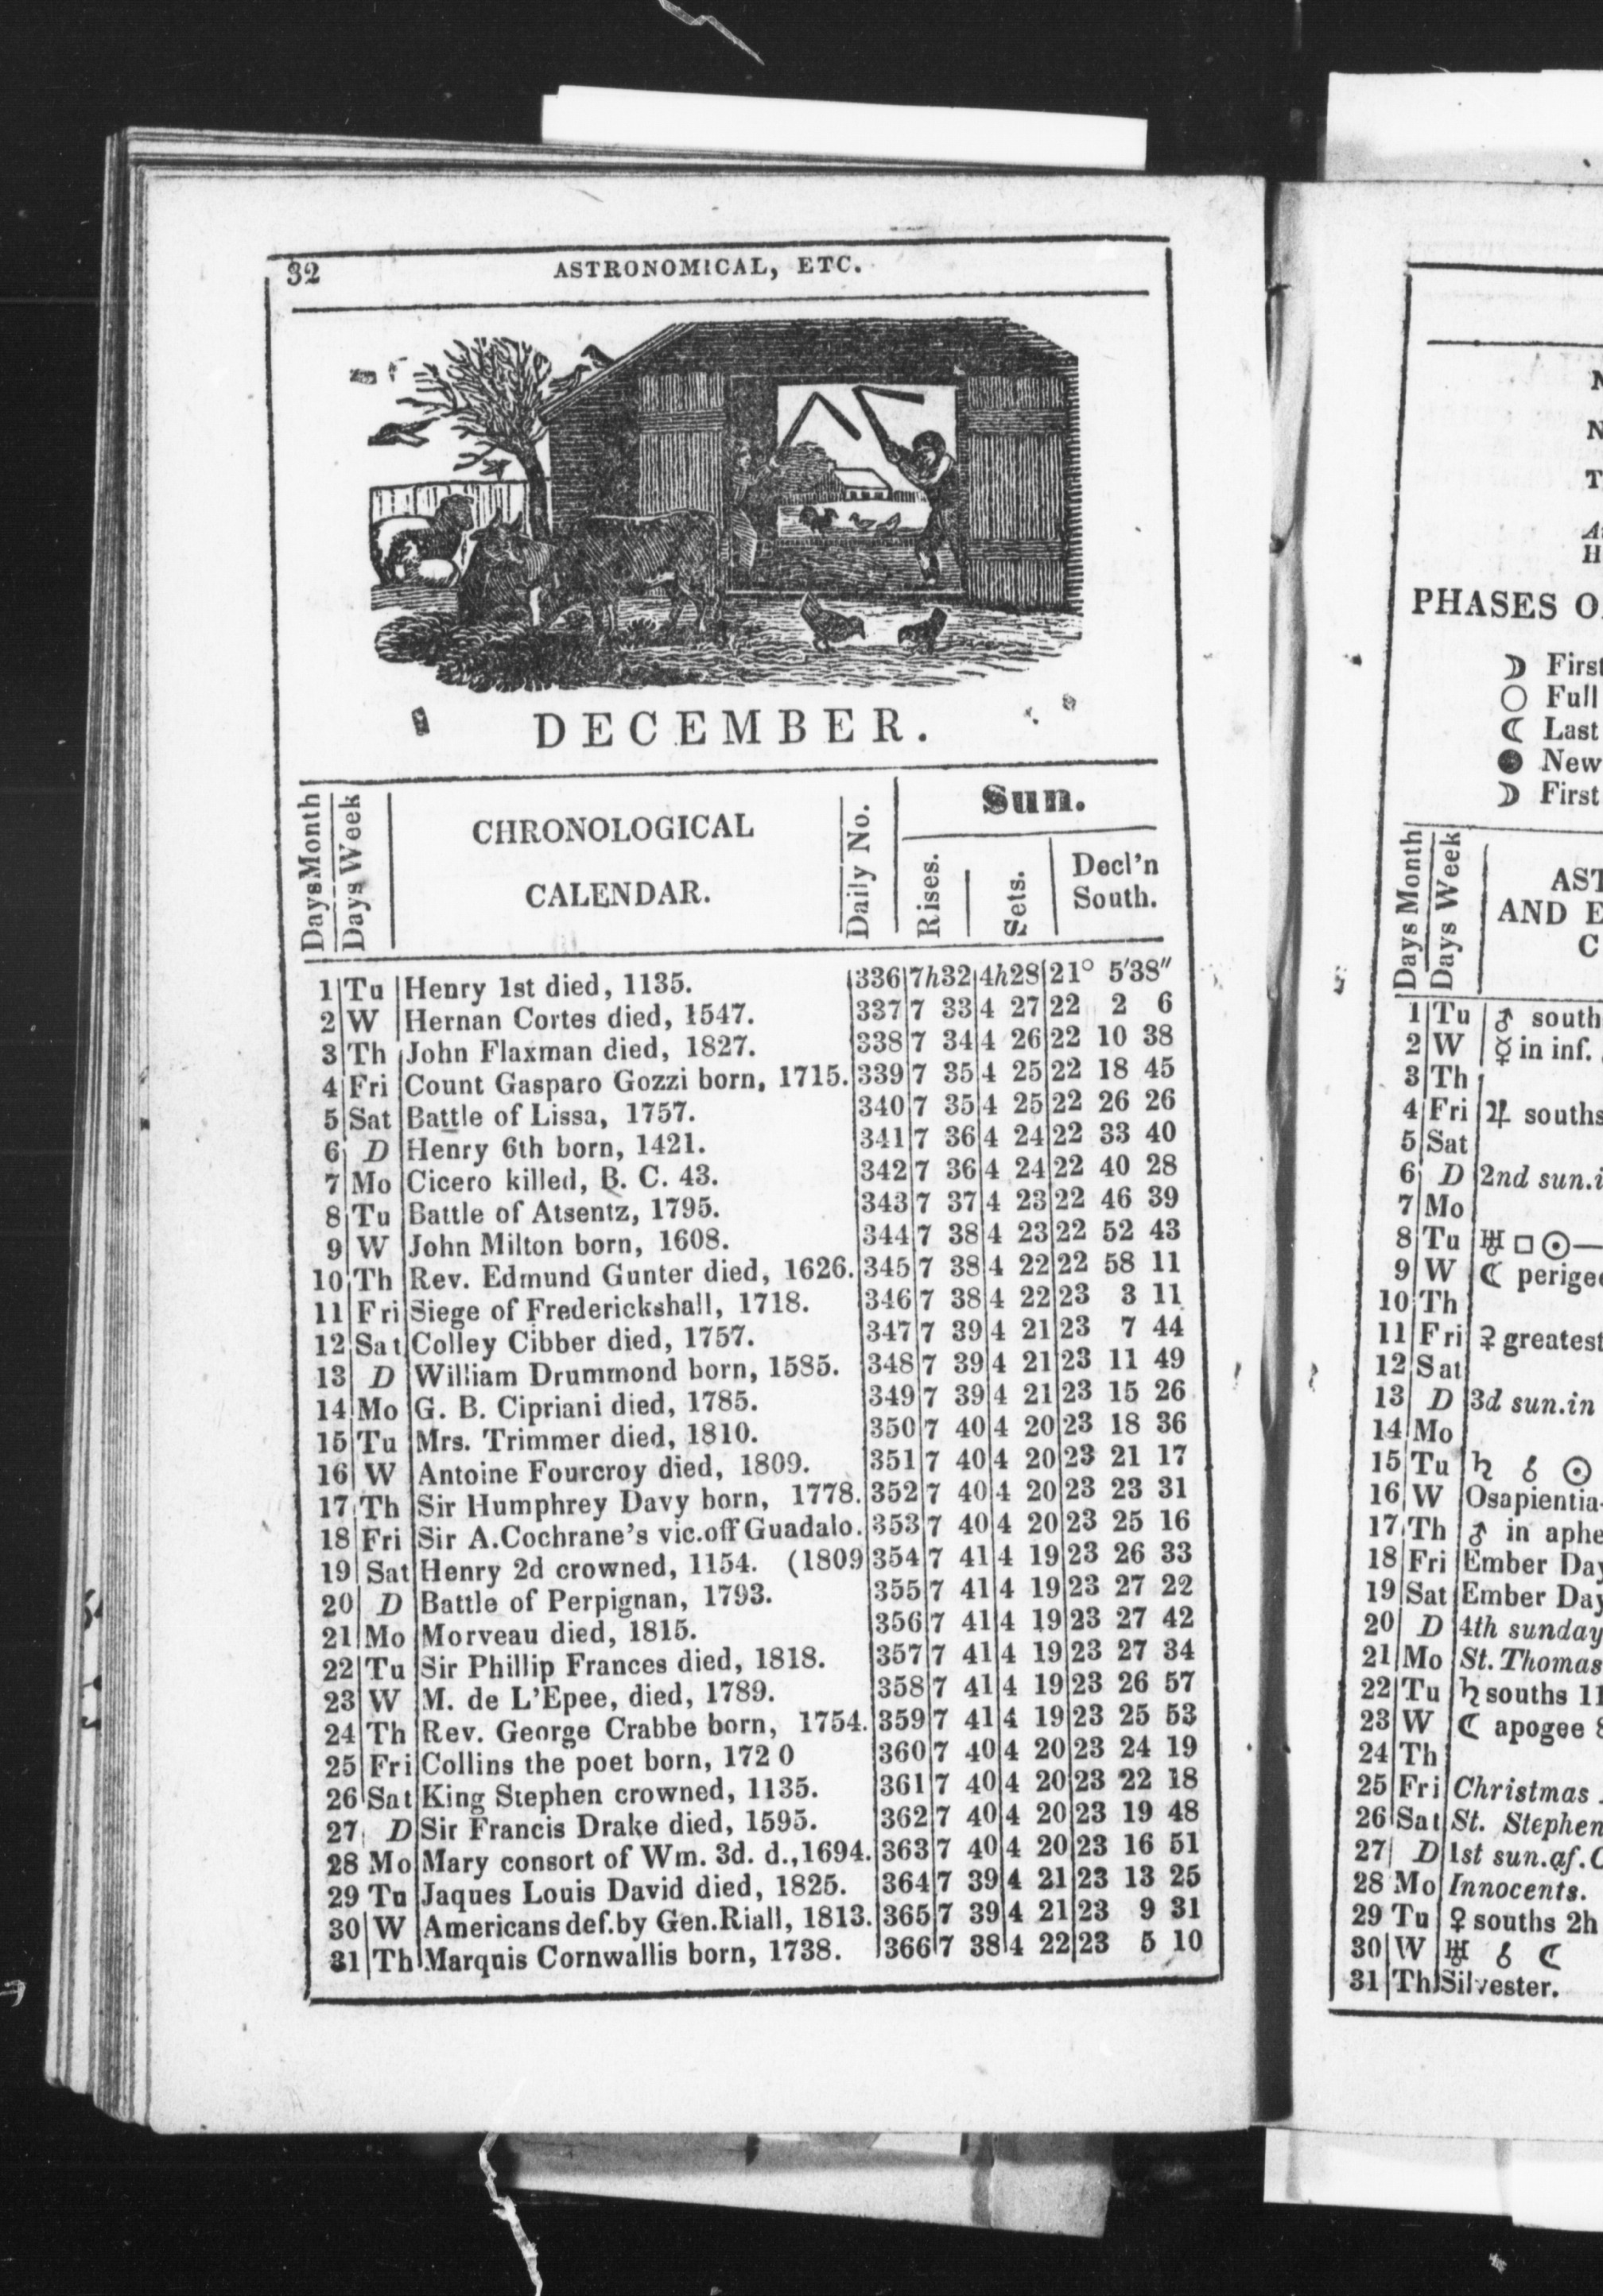 32
ASTRONOMICAL, ETC.
DECEMBER.
Days Month
Days Week
CHRONOLOGICAL
CALENDAR.
Daily No.
Sun.
Rises.
Sets.
Decl'n
South.
1 Tu Henry 1st died, 1135. 336 7h32 4h28 21° 5'38"
2 W Hernan Cortes died, 1547. 337 7 33 4 27 22 2 6
3 Th John Flaxman died, 1827. 338 7 34 4 26 22 10 38
4 Fri Count Gasparo Gozzi born, 1715. 339 7 35 4 25 22 18 45
5 Sat Battle of Lissa, 1757. 340 7 35 4 25 22 26 26
6 D Henry 6th born, 1421. 341 7 36 4 24 22 33 40
7 Mo Cicero killed, B. C. 43. 342 7 36 4 24 22 40 28
8 Tu Battle of Atsentz, 1795. 343 7 37 4 23 22 46 39
9 W John Milton born, 1608. 344 7 38 4 23 22 52 43
10 Th Rev. Edmund Gunter died, 1626. 345 7 38 4 22 22 58 11
11 Fri Siege of Frederickshall, 1718. 346 7 38 4 22 23 3 11
12 Sat Colley Cibber died, 1757. 347 7 39 4 21 23 7 44
13 D William Drummond born, 1585. 348 7 39 4 21 23 11 49
14 Mo G. B. Cipriani died, 1785. 349 7 39 4 21 23 15 26
15 Tu Mrs. Trimmer died, 1810. 350 7 40 4 20 23 18 36
16 W Antoine Fourcroy died, 1809. 351 7 40 4 20 23 21 17
17 Th Sir Humphrey Davy born, 1778. 352 7 40 4 20 23 23 31
18 Fri Sir A.Cochrane's vic.off Guadalo. 353 7 40 4 20 23 25 16
19 Sat Henry 2d crowned, 1154. (1809 354 7 41 4 19 23 26 33
20 D Battle of Perpignan, 1793. 355 7 41 4 19 23 27 22
21 Mo Morveau died, 1815. 356 7 41 4 19 23 27 42
22 Tu Sir Phillip Frances died, 1818. 357 7 41 4 19 23 27 34
23 W M. de L'Epee, died, 1789. 358 7 41 4 19 23 26 57
24 Th Rev. George Crabbe born, 1754. 359 7 41 4 19 23 25 53
25 Fri Collins the poet born, 172 0 360 7 40 4 20 23 24 19
26 Sat King Stephen crowned, 1135. 361 7 40 4 20 23 22 18
27 D Sir Francis Drake died, 1595. 362 7 40 4 20 23 19 48
28 Mo Mary consort of Wm. 3d. d.,1694. 363 7 40 4 20 23 16 51
29 Tu Jaques Louis David died, 1825. 364 7 39 4 21 23 13 25
30 W Americans def.by Gen.Riall, 1813. 365 7 39 4 21 23 9 31
31 Th Marquis Cornwallis born, 1738. 366 7 38 4 22 23 5 10
PHASES O
☽ First
○ Full
☾ Last
● New
☽ First
Days Month
Days Week
AST
AND E
C
1 Tu ♂ south
2 W ☿ in inf.
3 Th
4 Fri ♃ souths
5 Sat
6 D 2nd sun.i
7 Mo
8 Tu ♅ □ ☉—
9 W ☾ perigee
10 Th
11 Fri ♀ greatest
12 Sat
13 D 3d sun.in
14 Mo
15 Tu ♄ ☌ ☉
16 W Osapientia
17 Th ♂ in aphe
18 Fri Ember Day
19 Sat Ember Day
20 D 4th sunday
21 Mo St. Thomas
22 Tu ♄ souths 11
23 W ☾ apogee 8
24 Th
25 Fri Christmas
26 Sat St. Stephen
27 D 1st sun.af.C
28 Mo Innocents.
29 Tu ♀ souths 2h
30 W ♅ ☌ ☾
31 Th Silvester.